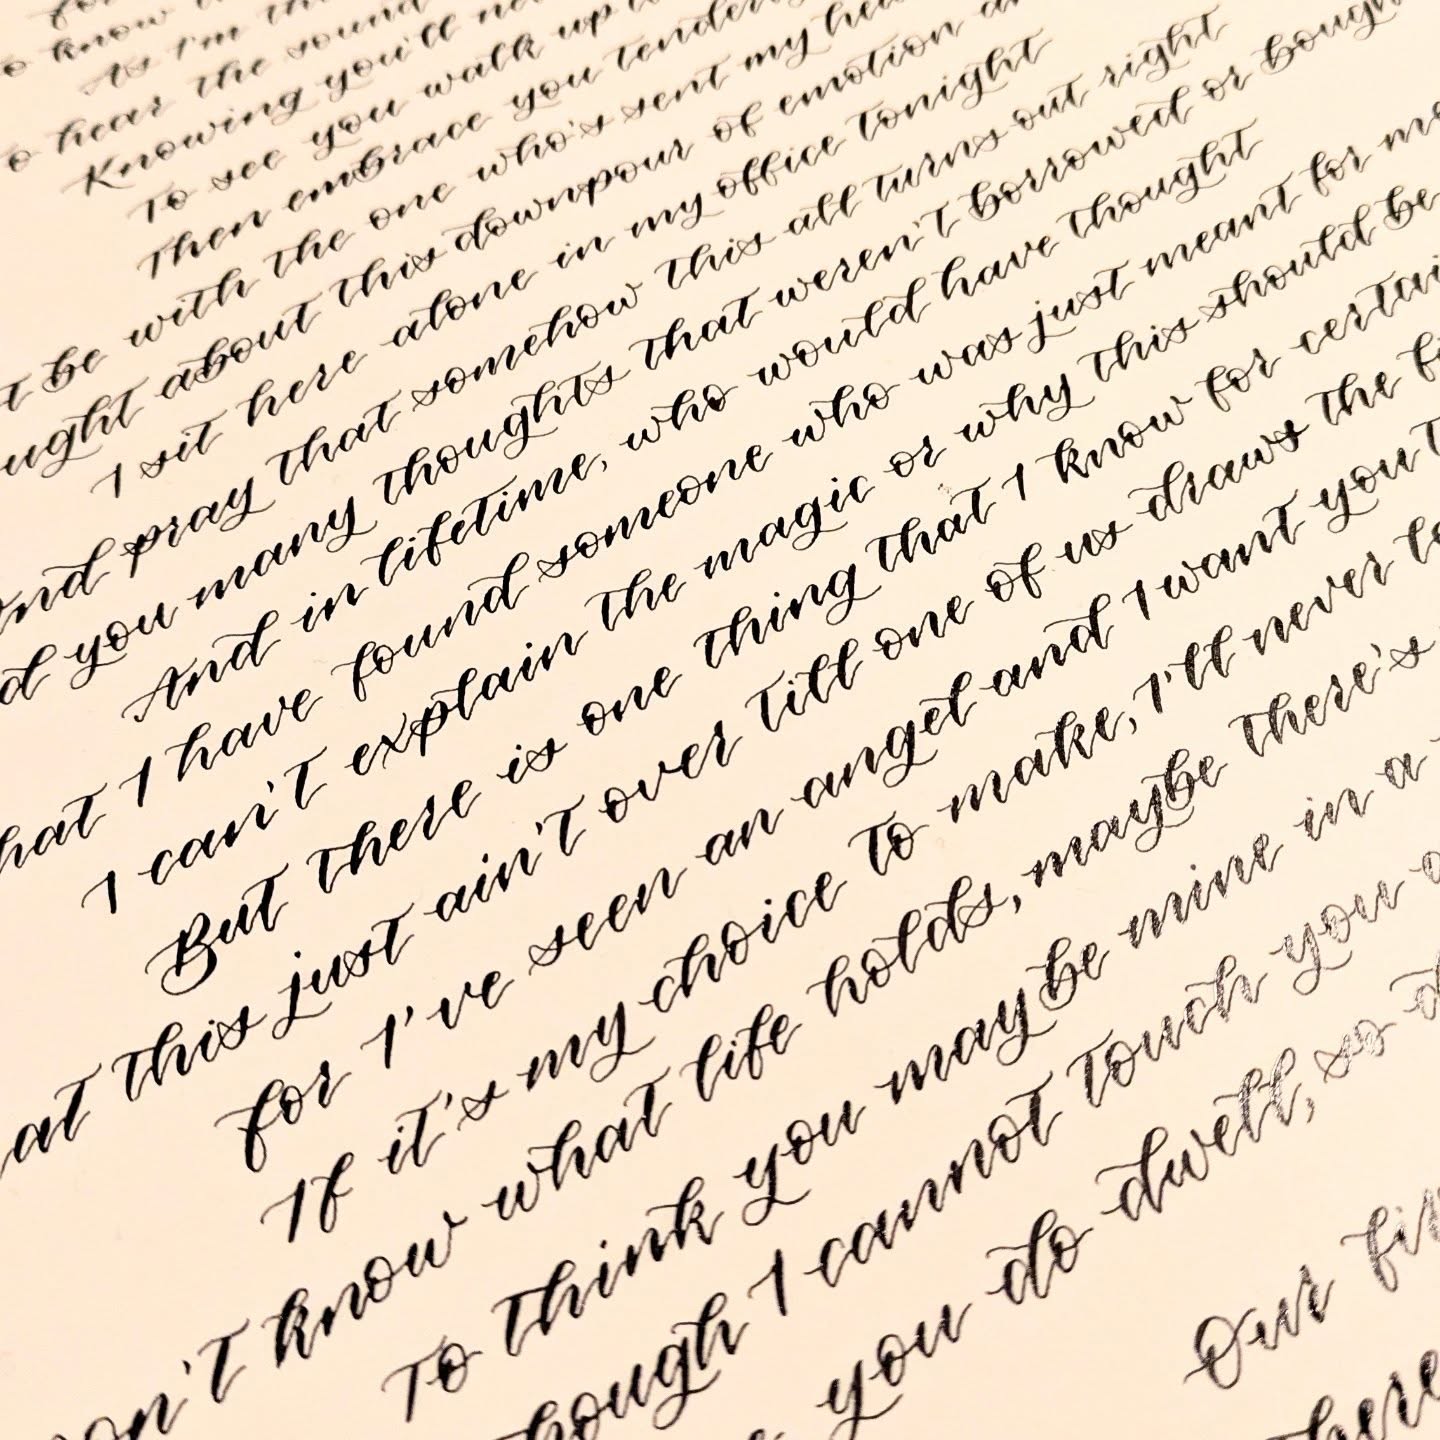 to know
As I'm th
to hear the sound
Knowing you'll n
To see you walk up t
Then embrace you tender
t be with the one who's sent my hea
ought about this downpour of emotion a
I sit here alone in my office tonight
And pray that somehow this all turns out right
d you many thoughts that weren't borrowed or bough
And in lifetime, who would have thought
hat I have found someone who was just meant for m
I can't explain the magic or why this should be
But there is one thing that I know for certai
at this just ain't over till one of us draws the fi
for I've seen an angel and I want you t
If it's my choice to make, I'll never l
on't know what life holds, maybe there's
To think you maybe mine in a
hough I cannot touch you
you do dwell, so d
Our fir
here